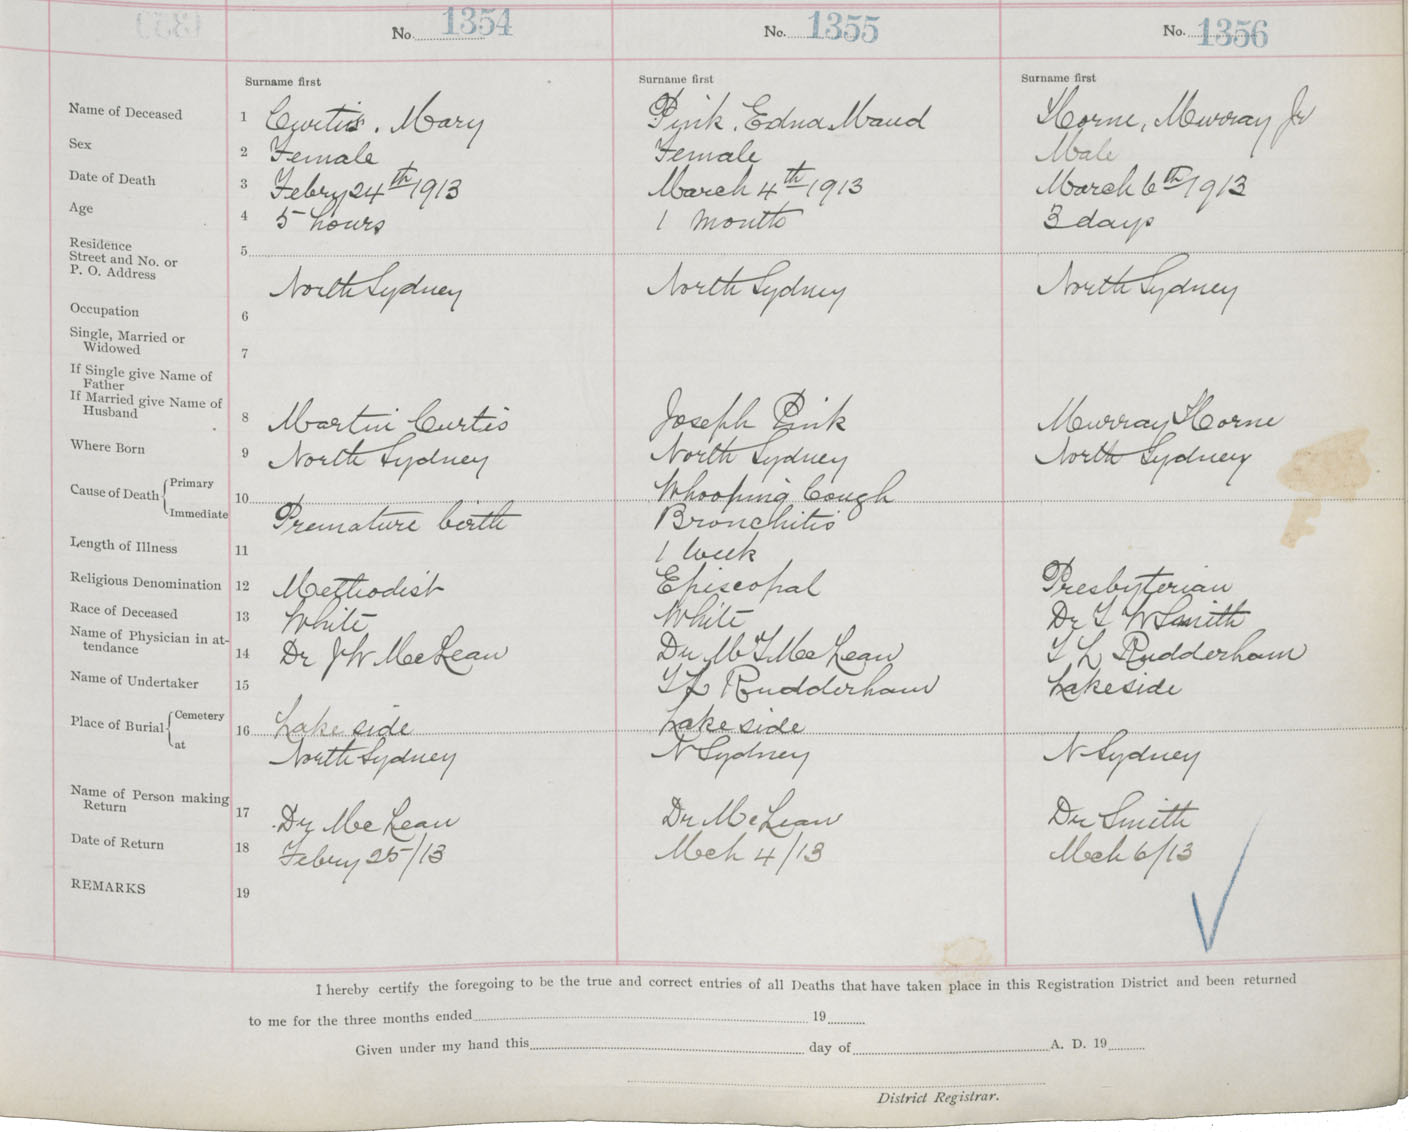 No. 1354 No. 1355 No. 1356
Surname first Surname first Surname first
Name of Deceased 1 Curtis, Mary Pink, Edna Maud Horne, Murray Jr
Sex 2 Female Female Male
Date of Death 3 Febry 24th 1913 March 4th 1913 March 6th 1913
Age 4 5 hours 1 month 3 days
Residence 5
Street and No. or
P. O. Address North Sydney North Sydney North Sydney
Occupation 6
Single, Married or
Widowed 7
If Single give Name of
Father
If Married give Name of
Husband 8 Martin Curtis Joseph Pink Murray Horne
Where Born 9 North Sydney North Sydney North Sydney
Cause of Death Primary 10 Whooping Cough
Immediate Premature birth Bronchitis
Length of Illness 11 1 week
Religious Denomination 12 Methodist Episcopal Presbyterian
Race of Deceased 13 White White Dr Smith
Name of Physician in at-
tendance 14 Dr J W McLean Dr McLean Rudderham
Name of Undertaker 15 Rudderham Lakeside
Place of Burial Cemetery 16 Lakeside Lakeside
at North Sydney N Sydney N Sydney
Name of Person making
Return 17 Dr McLean Dr McLean Dr Smith
Date of Return 18 Febry 25/13 Mch 4/13 Mch 6/13
REMARKS 19
I hereby certify the foregoing to be the true and correct entries of all Deaths that have taken place in this Registration District and been returned
to me for the three months ended 19
Given under my hand this day of A. D. 19
District Registrar.